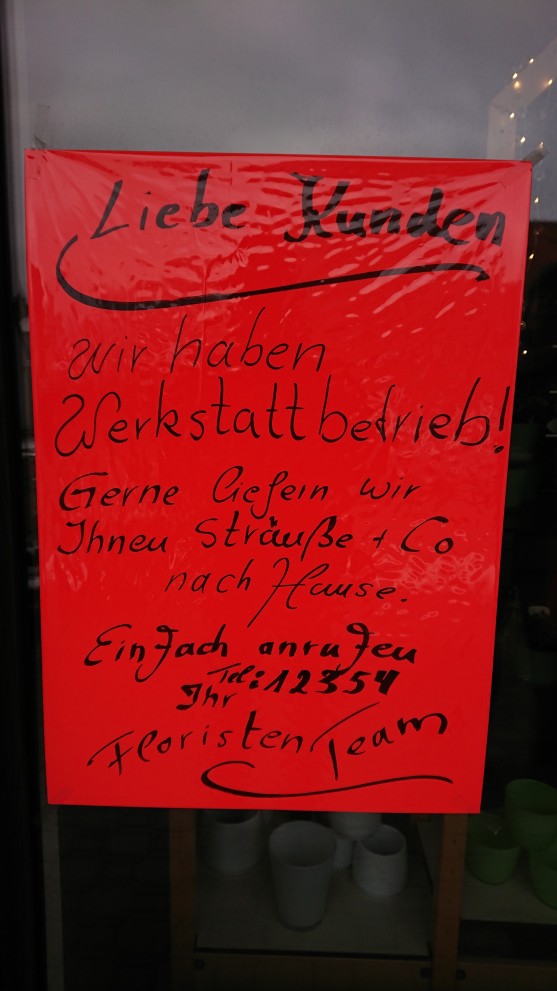 Liebe Kunden
wir haben
Werkstattbetrieb!
Gerne liefern wir
Ihnen Sträuße + Co
nach Hause.
Einfach anrufen
Tel: 12354
Ihr
Floristen Team